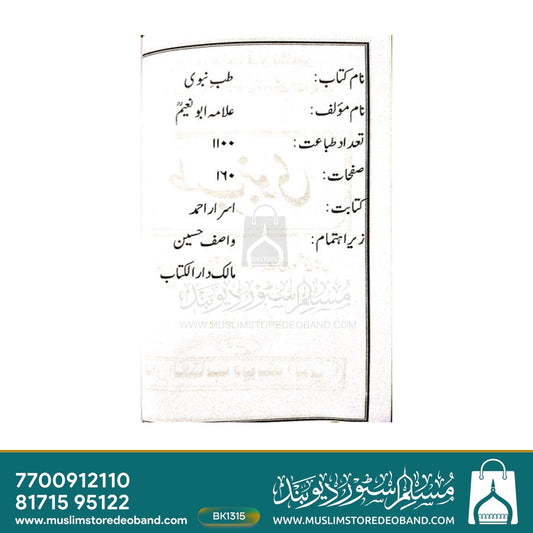 نام کتاب: طب نبوی
نام مؤلف: علامہ ابو نعیمؒ
تعداد طباعت: ۱۱۰۰
صفحات: ۱۶۰
کتابت: اسرار احمد
زیر اہتمام: واصف حسین
مالک دار الکتاب
مسلم سٹور دیوبند
WWW.MUSLIMSTOREDEOBAND.COM
7700912110
81715 95122
www.muslimstoredeoband.com
BK1315
مسلم سٹور دیوبند
WWW.MUSLIMSTOREDEOBAND.COM